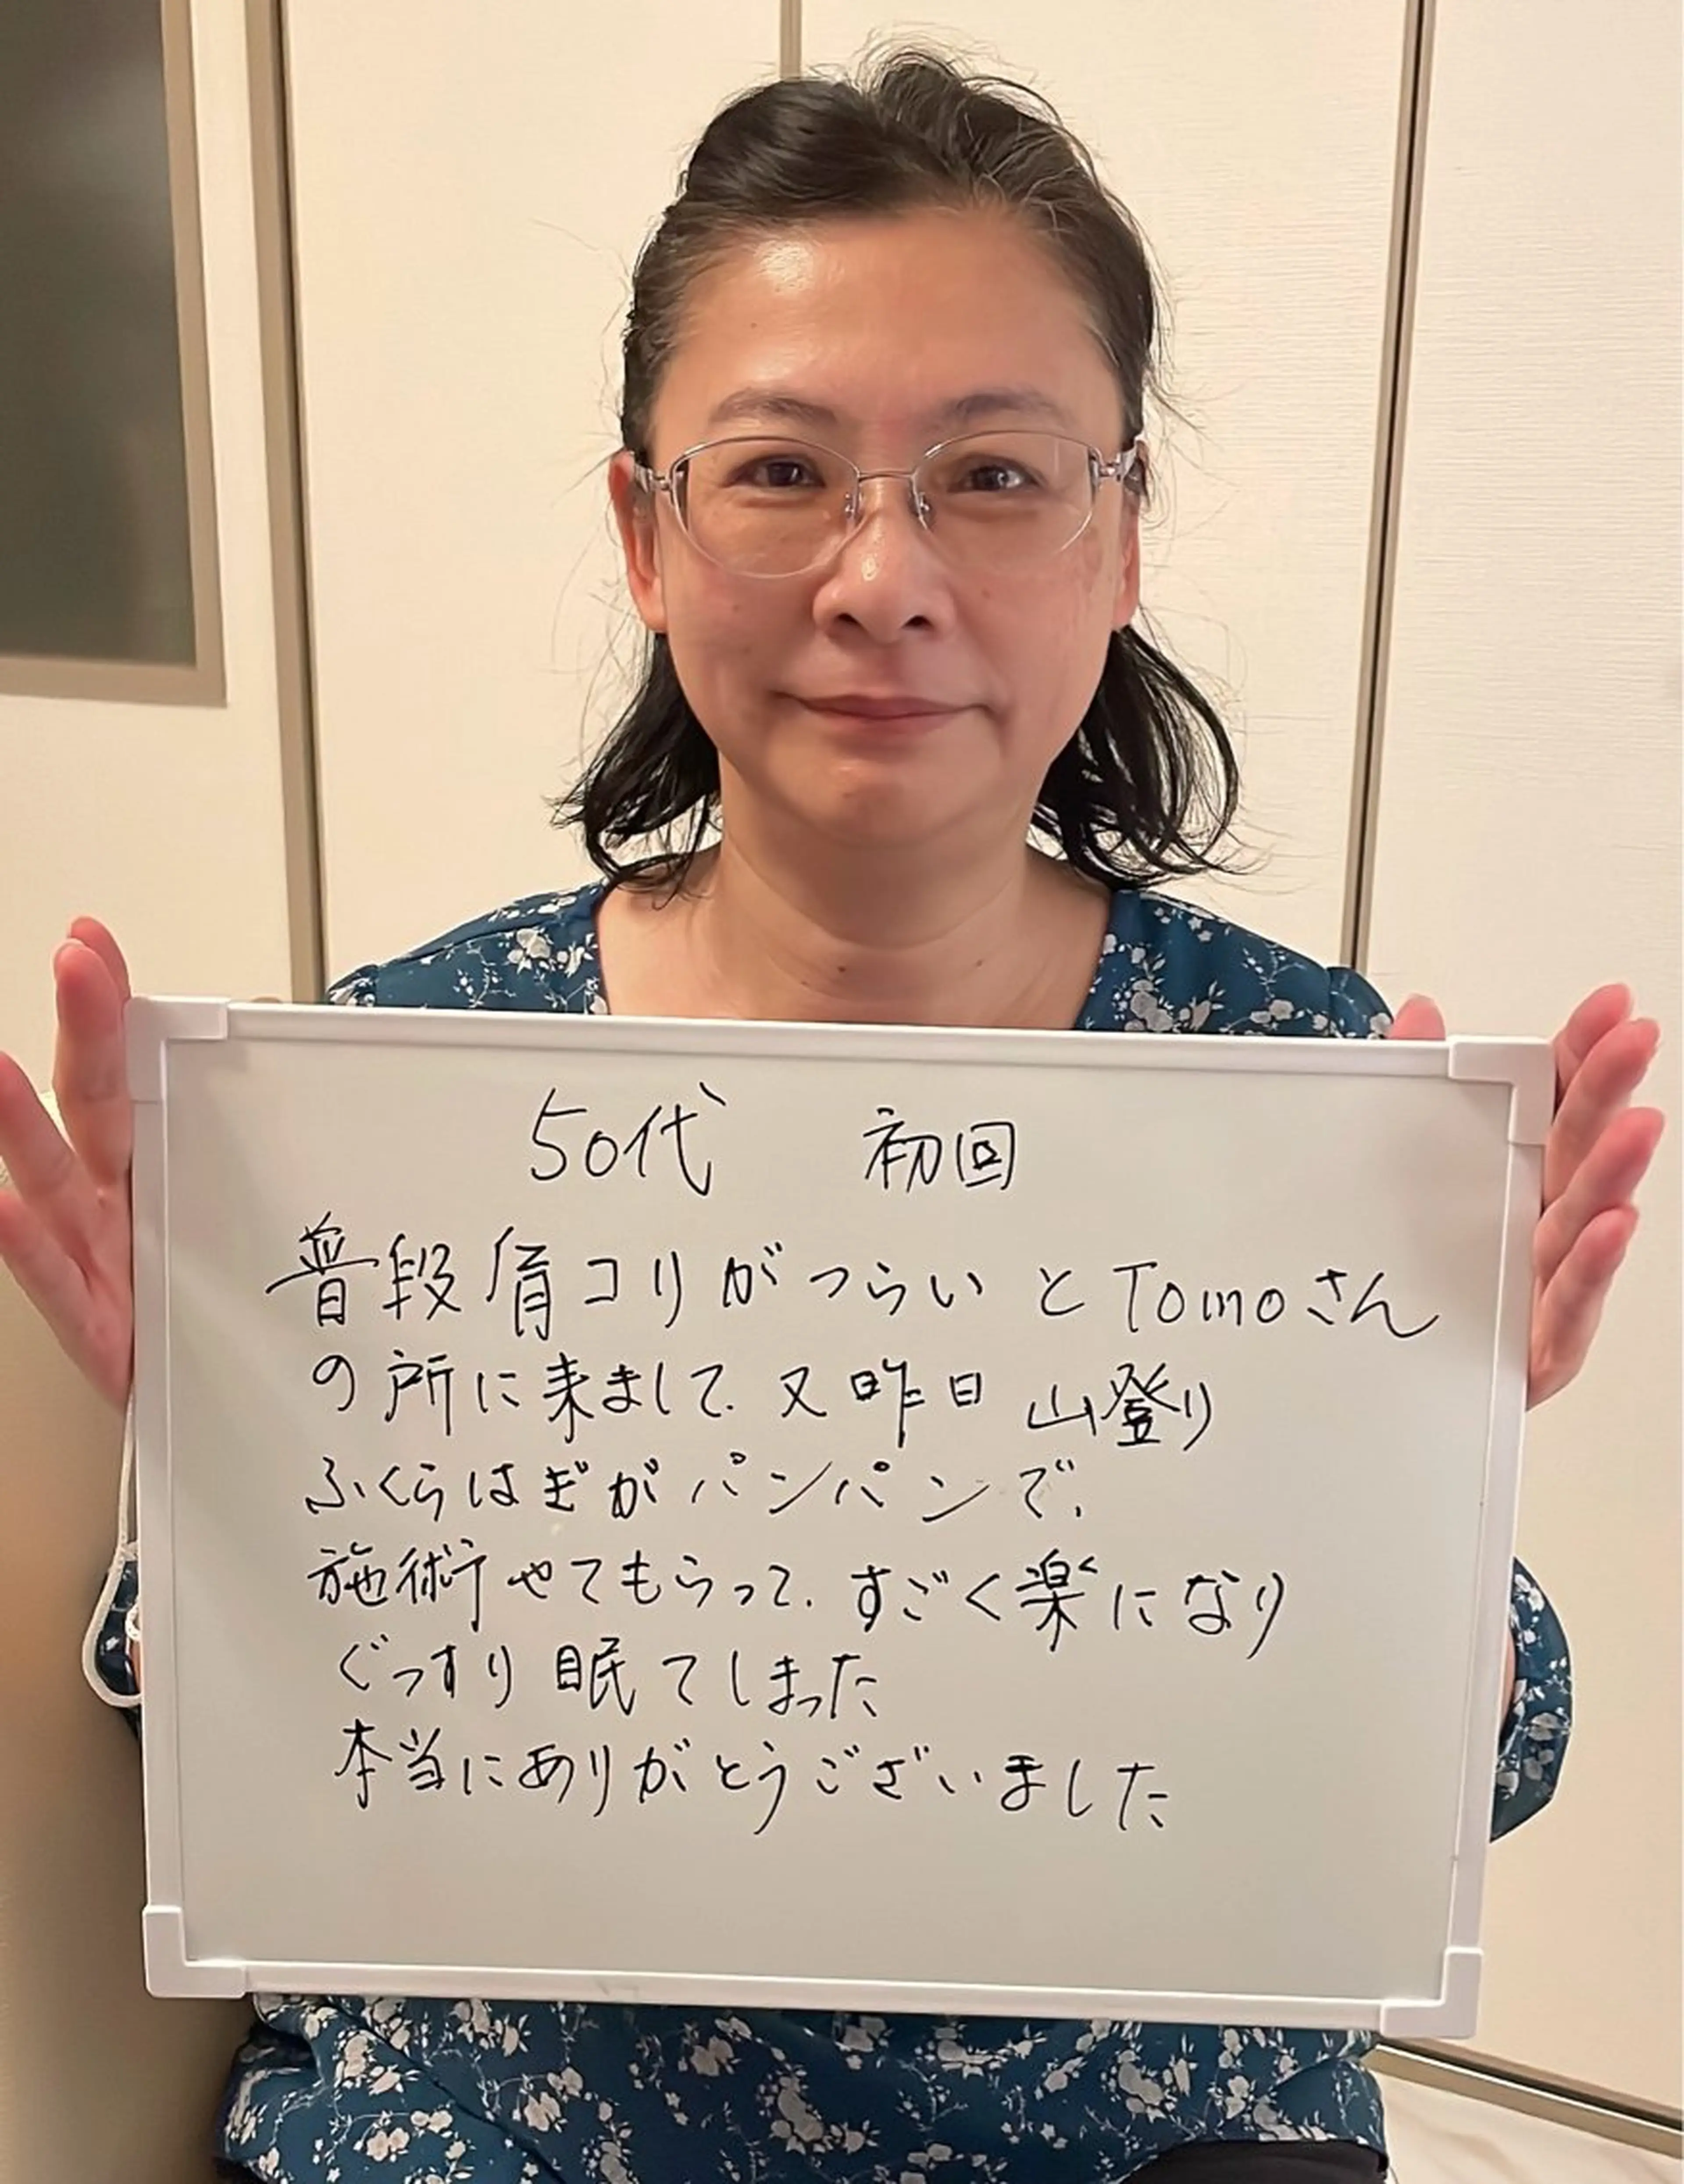 50代 初回
普段肩コリがつらいとTomoさん
の所に来まして、又昨日 山登り
ふくらはぎがパンパンで、
施術やてもらって、すごく楽になり
ぐっすり眠てしまった
本当にありがとうございました